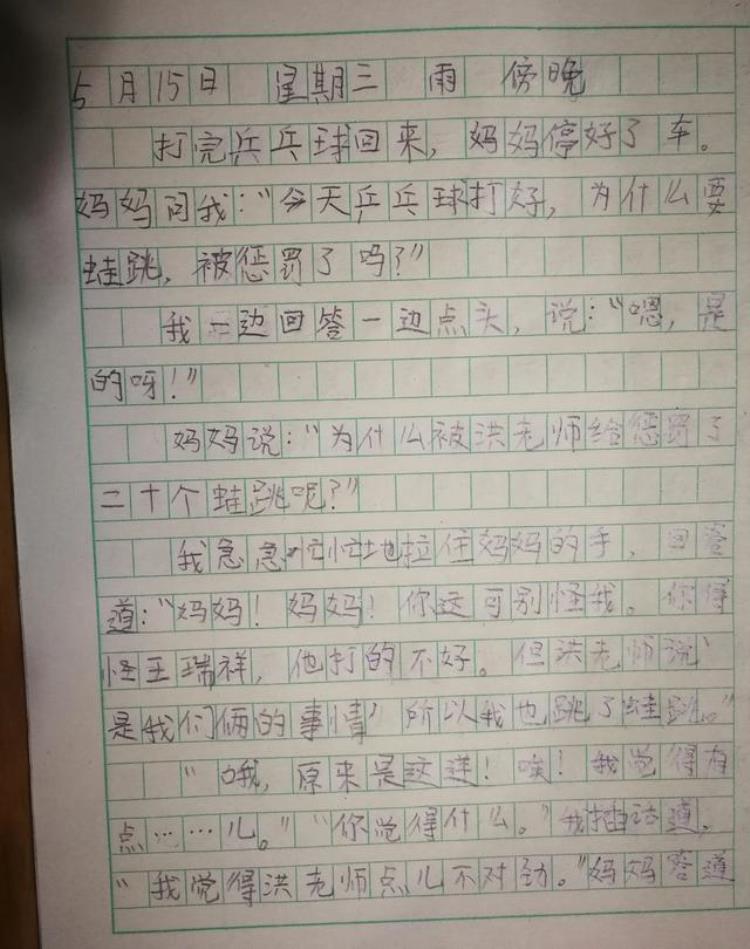 5月15日 星期三 雨 傍晚
打完兵兵球回来，妈妈停好了车。
妈妈问我：“今天乒乓球打好，为什么要
蛙跳，被惩罚了吗？”
我一边回答一边点头，说：“嗯，是
的呀！”
妈妈说：“为什么被洪老师给惩罚了
二十个蛙跳呢？”
我急急忙忙地拉住妈妈的手，回答
道：“妈妈！妈妈！你这可别怪我。你得
怪王瑞祥，他打的不好。但洪老师说‘
是我们俩的事情’所以我也跳了蛙跳。”
“哦，原来是这样！唉！我觉得有
点……儿。”“你觉得什么。”我插话道，
“我觉得洪老师点儿不对劲。”妈妈答道